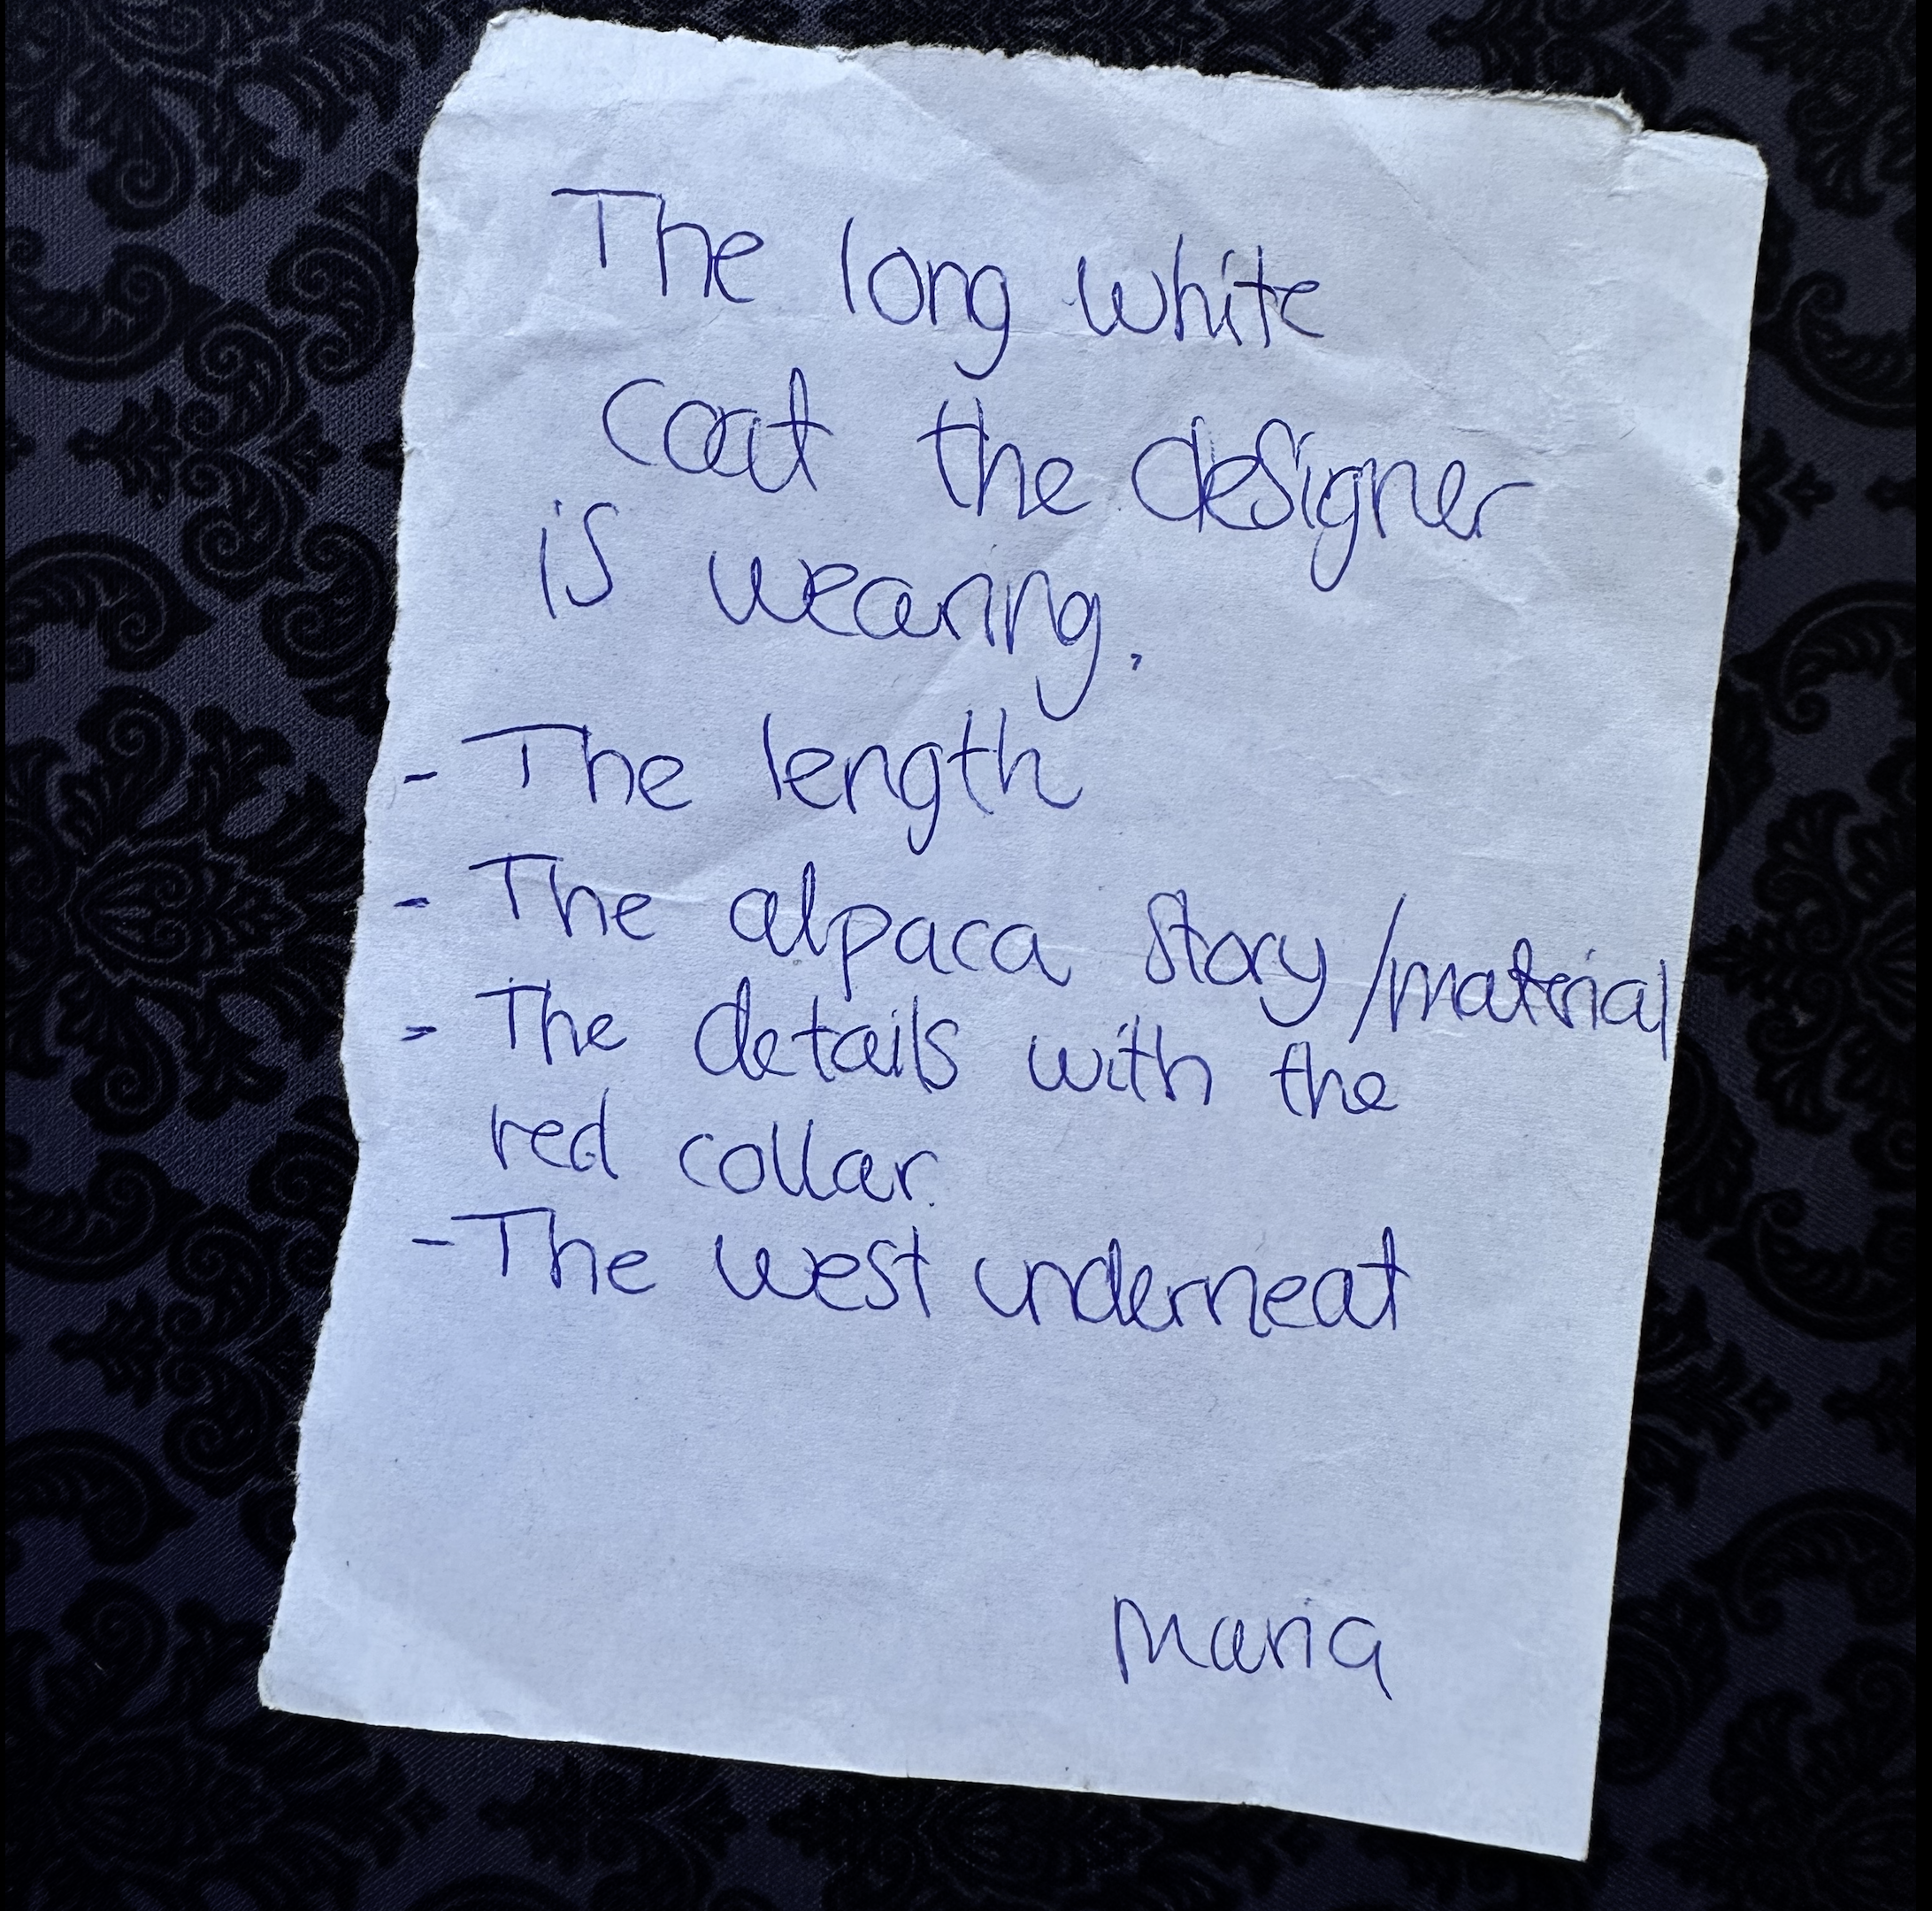 The long white
coat the designer
is wearing.
- The length
- The alpaca story/material
- The details with the
red collar.
- The west underneat
Maria